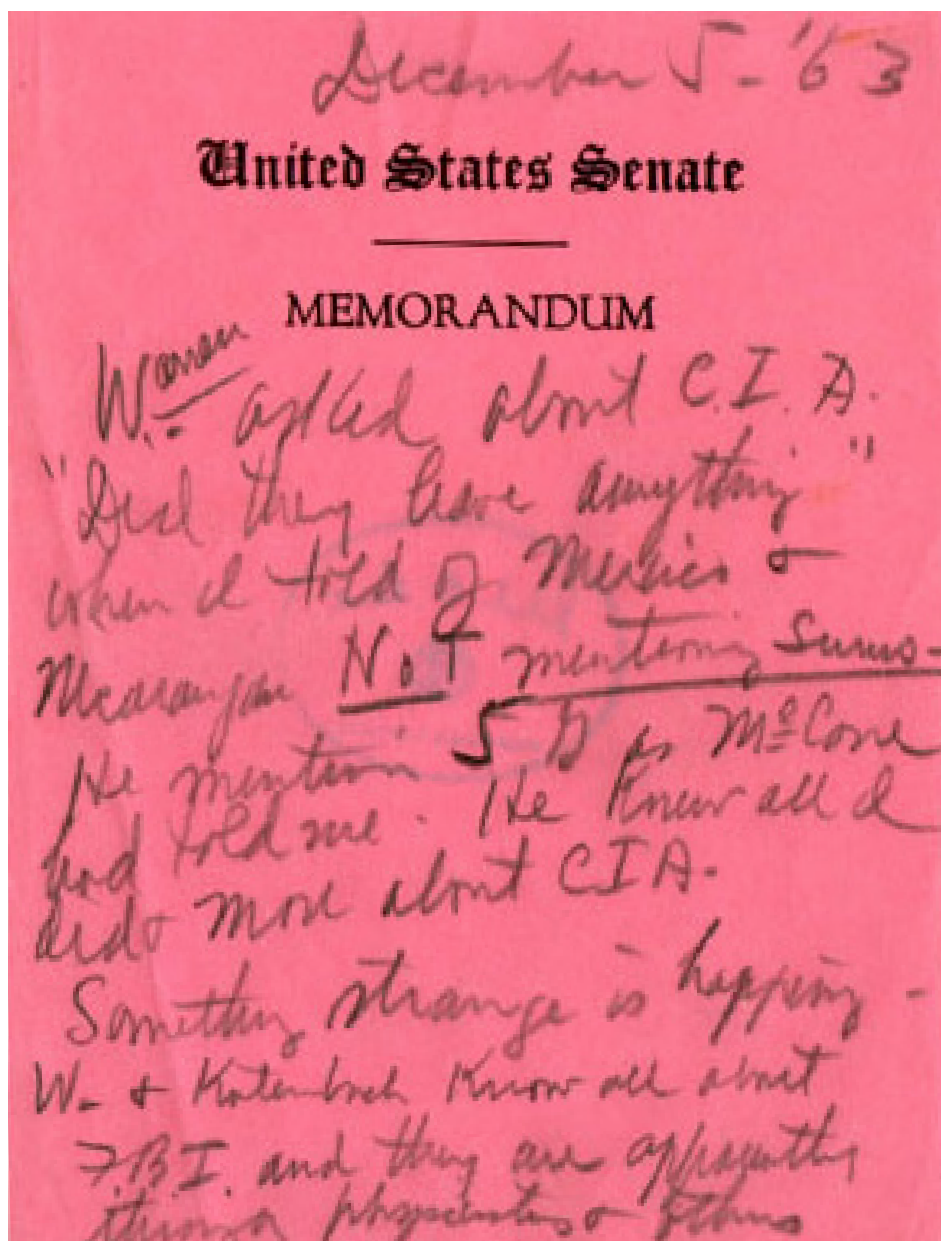 December 5 - '63
United States Senate
MEMORANDUM
Warren
W. - asked about C.I.A.
"Did they have anything"
when I told of Mexico &
Nicaraguan NOT mentioning sums -
He mention 5 G as McCone
had told me. He knew all I
did & more about CIA.
Something strange is happing -
W. & Katenbach know all about
F.B.I. and they are apparently
through others